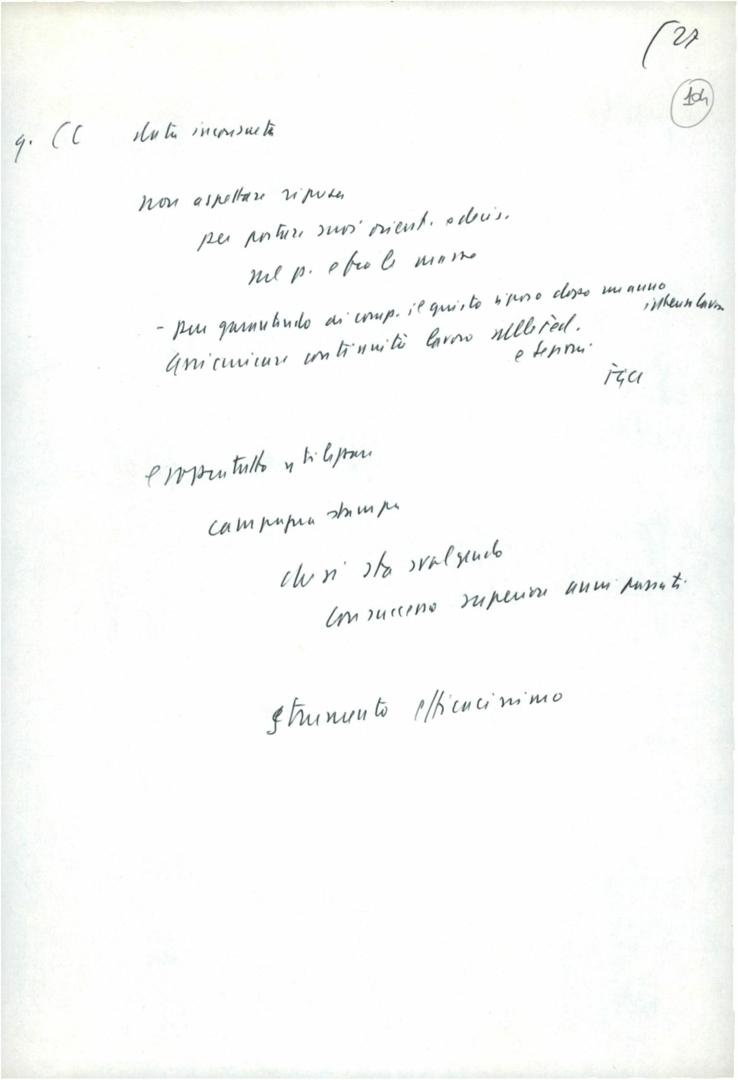 27
104
q. CC data inconsueta
non aspettare ripresa
per portare suoi orient. e decis.
nel p. e fra le masse
- pur garantendo ai comp. il giusto riposo dopo un anno
intenso lavoro
assicurare continuità lavoro nelle Fed.
e sezioni
FGCI
e soprattutto utilizzare
campagna stampa
che si sta svolgendo
con successo superiore anni passati.
strumento efficacissimo